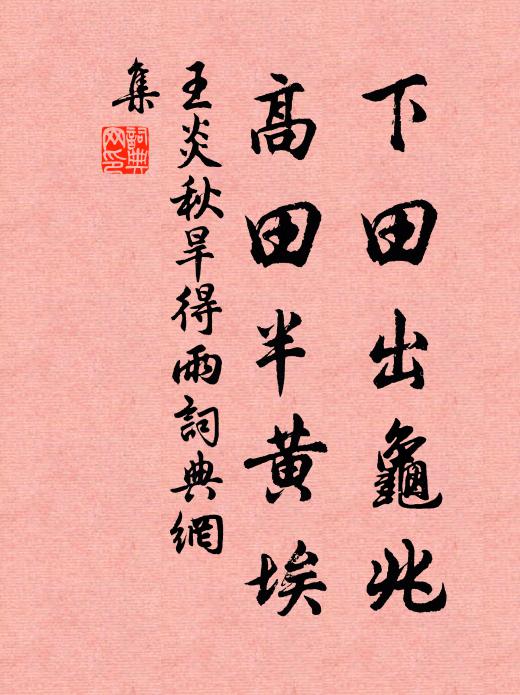 下田出龜兆
高田半黄埃
王炎秋旱得雨詞典網
集
詞典網印